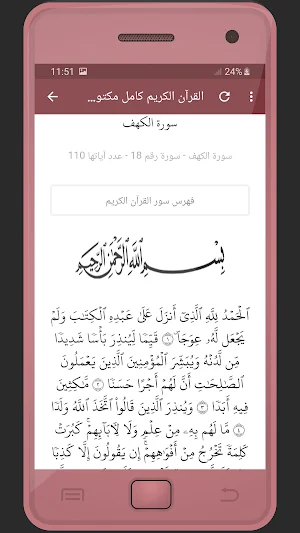 11:51 24%
القرآن الكريم كامل مكتو...
سورة الكهف
سورة الكهف - سورة رقم 18 - عدد آياتها 110
فهرس سور القرآن الكريم
بِسْمِ اللَّهِ الرَّحْمَٰنِ الرَّحِيمِ
ٱلۡحَمۡدُ لِلَّهِ ٱلَّذِيٓ أَنزَلَ عَلَىٰ عَبۡدِهِ ٱلۡكِتَٰبَ وَلَمۡ
يَجۡعَل لَّهُۥ عِوَجَاۜ ۝١ قَيِّمٗا لِّيُنذِرَ بَأۡسٗا شَدِيدٗا
مِّن لَّدُنۡهُ وَيُبَشِّرَ ٱلۡمُؤۡمِنِينَ ٱلَّذِينَ يَعۡمَلُونَ
ٱلصَّٰلِحَٰتِ أَنَّ لَهُمۡ أَجۡرًا حَسَنٗا ۝٢ مَّٰكِثِينَ
فِيهِ أَبَدٗا ۝٣ وَيُنذِرَ ٱلَّذِينَ قَالُواْ ٱتَّخَذَ ٱللَّهُ وَلَدٗا
۝٤ مَّا لَهُم بِهِۦ مِنۡ عِلۡمٖ وَلَا لِأٓبَآئِهِمۡۚ كَبُرَتۡ
كَلِمَةٗ تَخۡرُجُ مِنۡ أَفۡوَٰهِهِمۡۚ إِن يَقُولُونَ إِلَّا كَذِبٗا